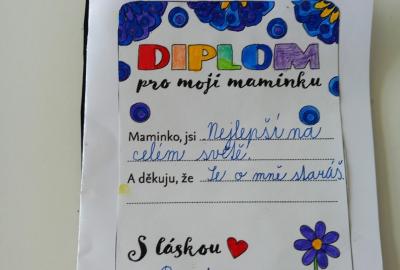 DIPLOM
pro moji maminku
Maminko, jsi Nejlepší na
celém světě!
A děkuju, že se o mně staráš.
S láskou